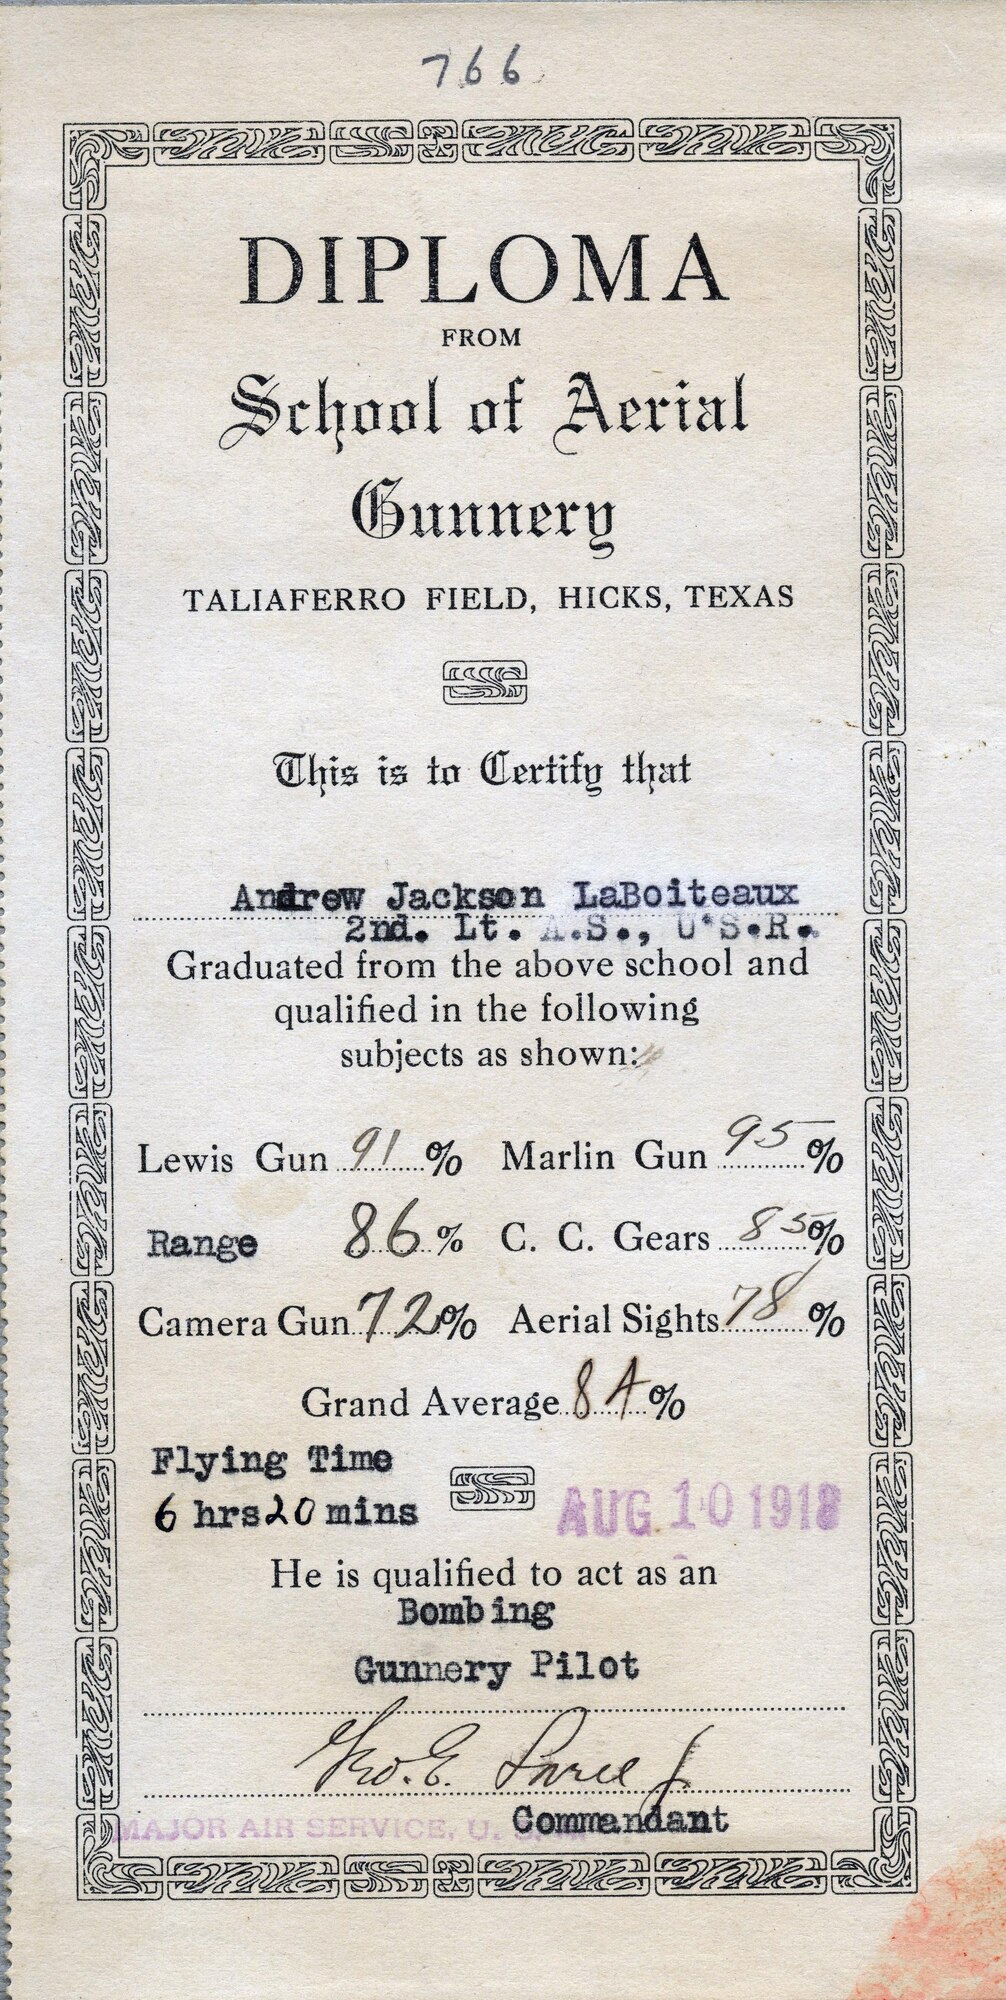 766
DIPLOMA
FROM
School of Aerial
Gunnery
TALIAFERRO FIELD, HICKS, TEXAS
This is to Certify that
Andrew Jackson LaBoiteaux
2nd. Lt. A.S., U.S.R.
Graduated from the above school and
qualified in the following
subjects as shown:
Lewis Gun 91 % Marlin Gun 95 %
Range 86 % C. C. Gears 85 %
Camera Gun 72 % Aerial Sights 78 %
Grand Average 84 %
Flying Time
6 hrs 20 mins AUG 10 1918
He is qualified to act as an
Bombing
Gunnery Pilot
Geo. E.
Commandant
MAJOR AIR SERVICE, U. S.